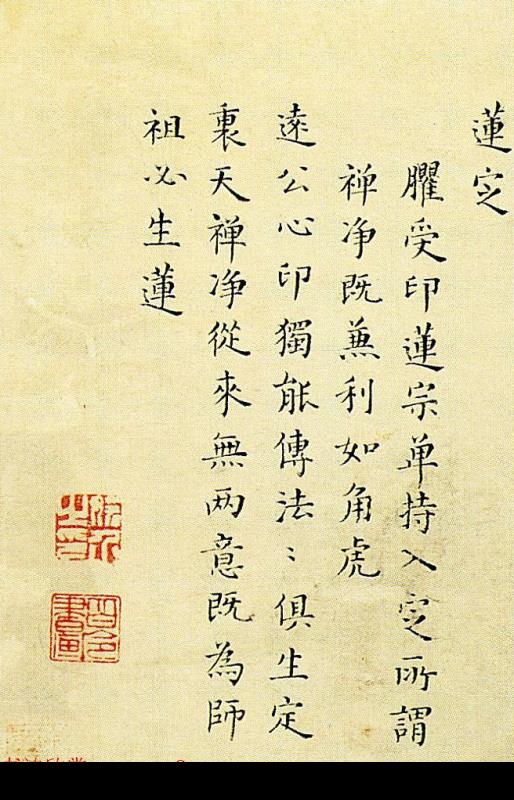 蓮定
臞受印蓮宗单持入定所謂
禅净既兼利如角虎
遠公心印獨能傳法〻俱生定
裏天禅净從來無两意既為師
祖必生蓮